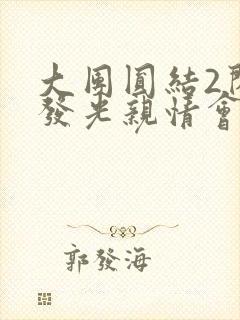 大團圓結2
發光親情會
郭發海